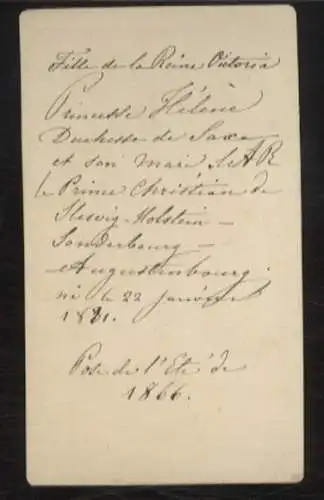 Fille de la Reine Victoria
Princesse Hélène
Duchesse de Saxe
et son mari S.A.R
le Prince Christian de
Slesvig-Holstein -
Sonderbourg -
Augustenbourg.
né le 22 janvier
1831.
Pose de l'Eté de
1866.